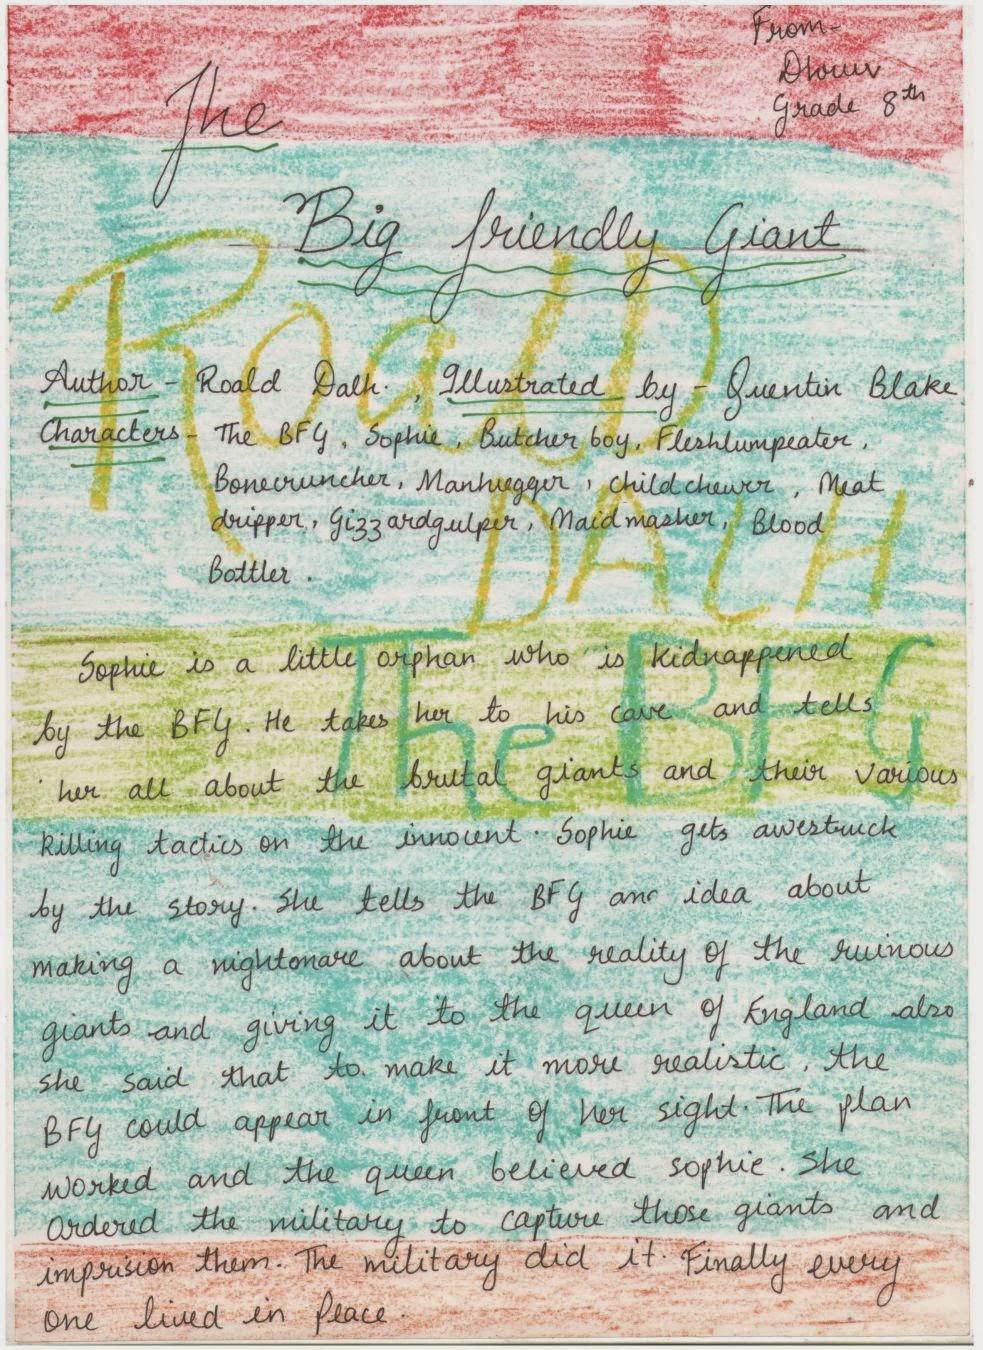 From-
Grade 8th
The
Big friendly Giant
Roald
DALH
Author - Roald Dalh. , Illustrated by - Quentin Blake
Characters - The BFG, Sophie, Butcher boy, Fleshlumpeater,
Bonecruncher, Manhugger, childchewr, Meat
dripper, Gizzardgulper, Maidmasher, Blood
Bottler.
The BFG
Sophie is a little orphan who is kidnappened
by the BFG. He takes her to his cave and tells
her all about the brutal giants and their various
killing tactics on the innocent. Sophie gets awestruck
by the story. She tells the BFG an idea about
making a nightonare about the reality of the ruinous
giants and giving it to the queen of England also
she said that to make it more realistic, the
BFG could appear in front of her sight. The plan
worked and the queen believed sophie. She
Ordered the military to capture those giants and
imprision them. The military did it. Finally every
one lived in peace.